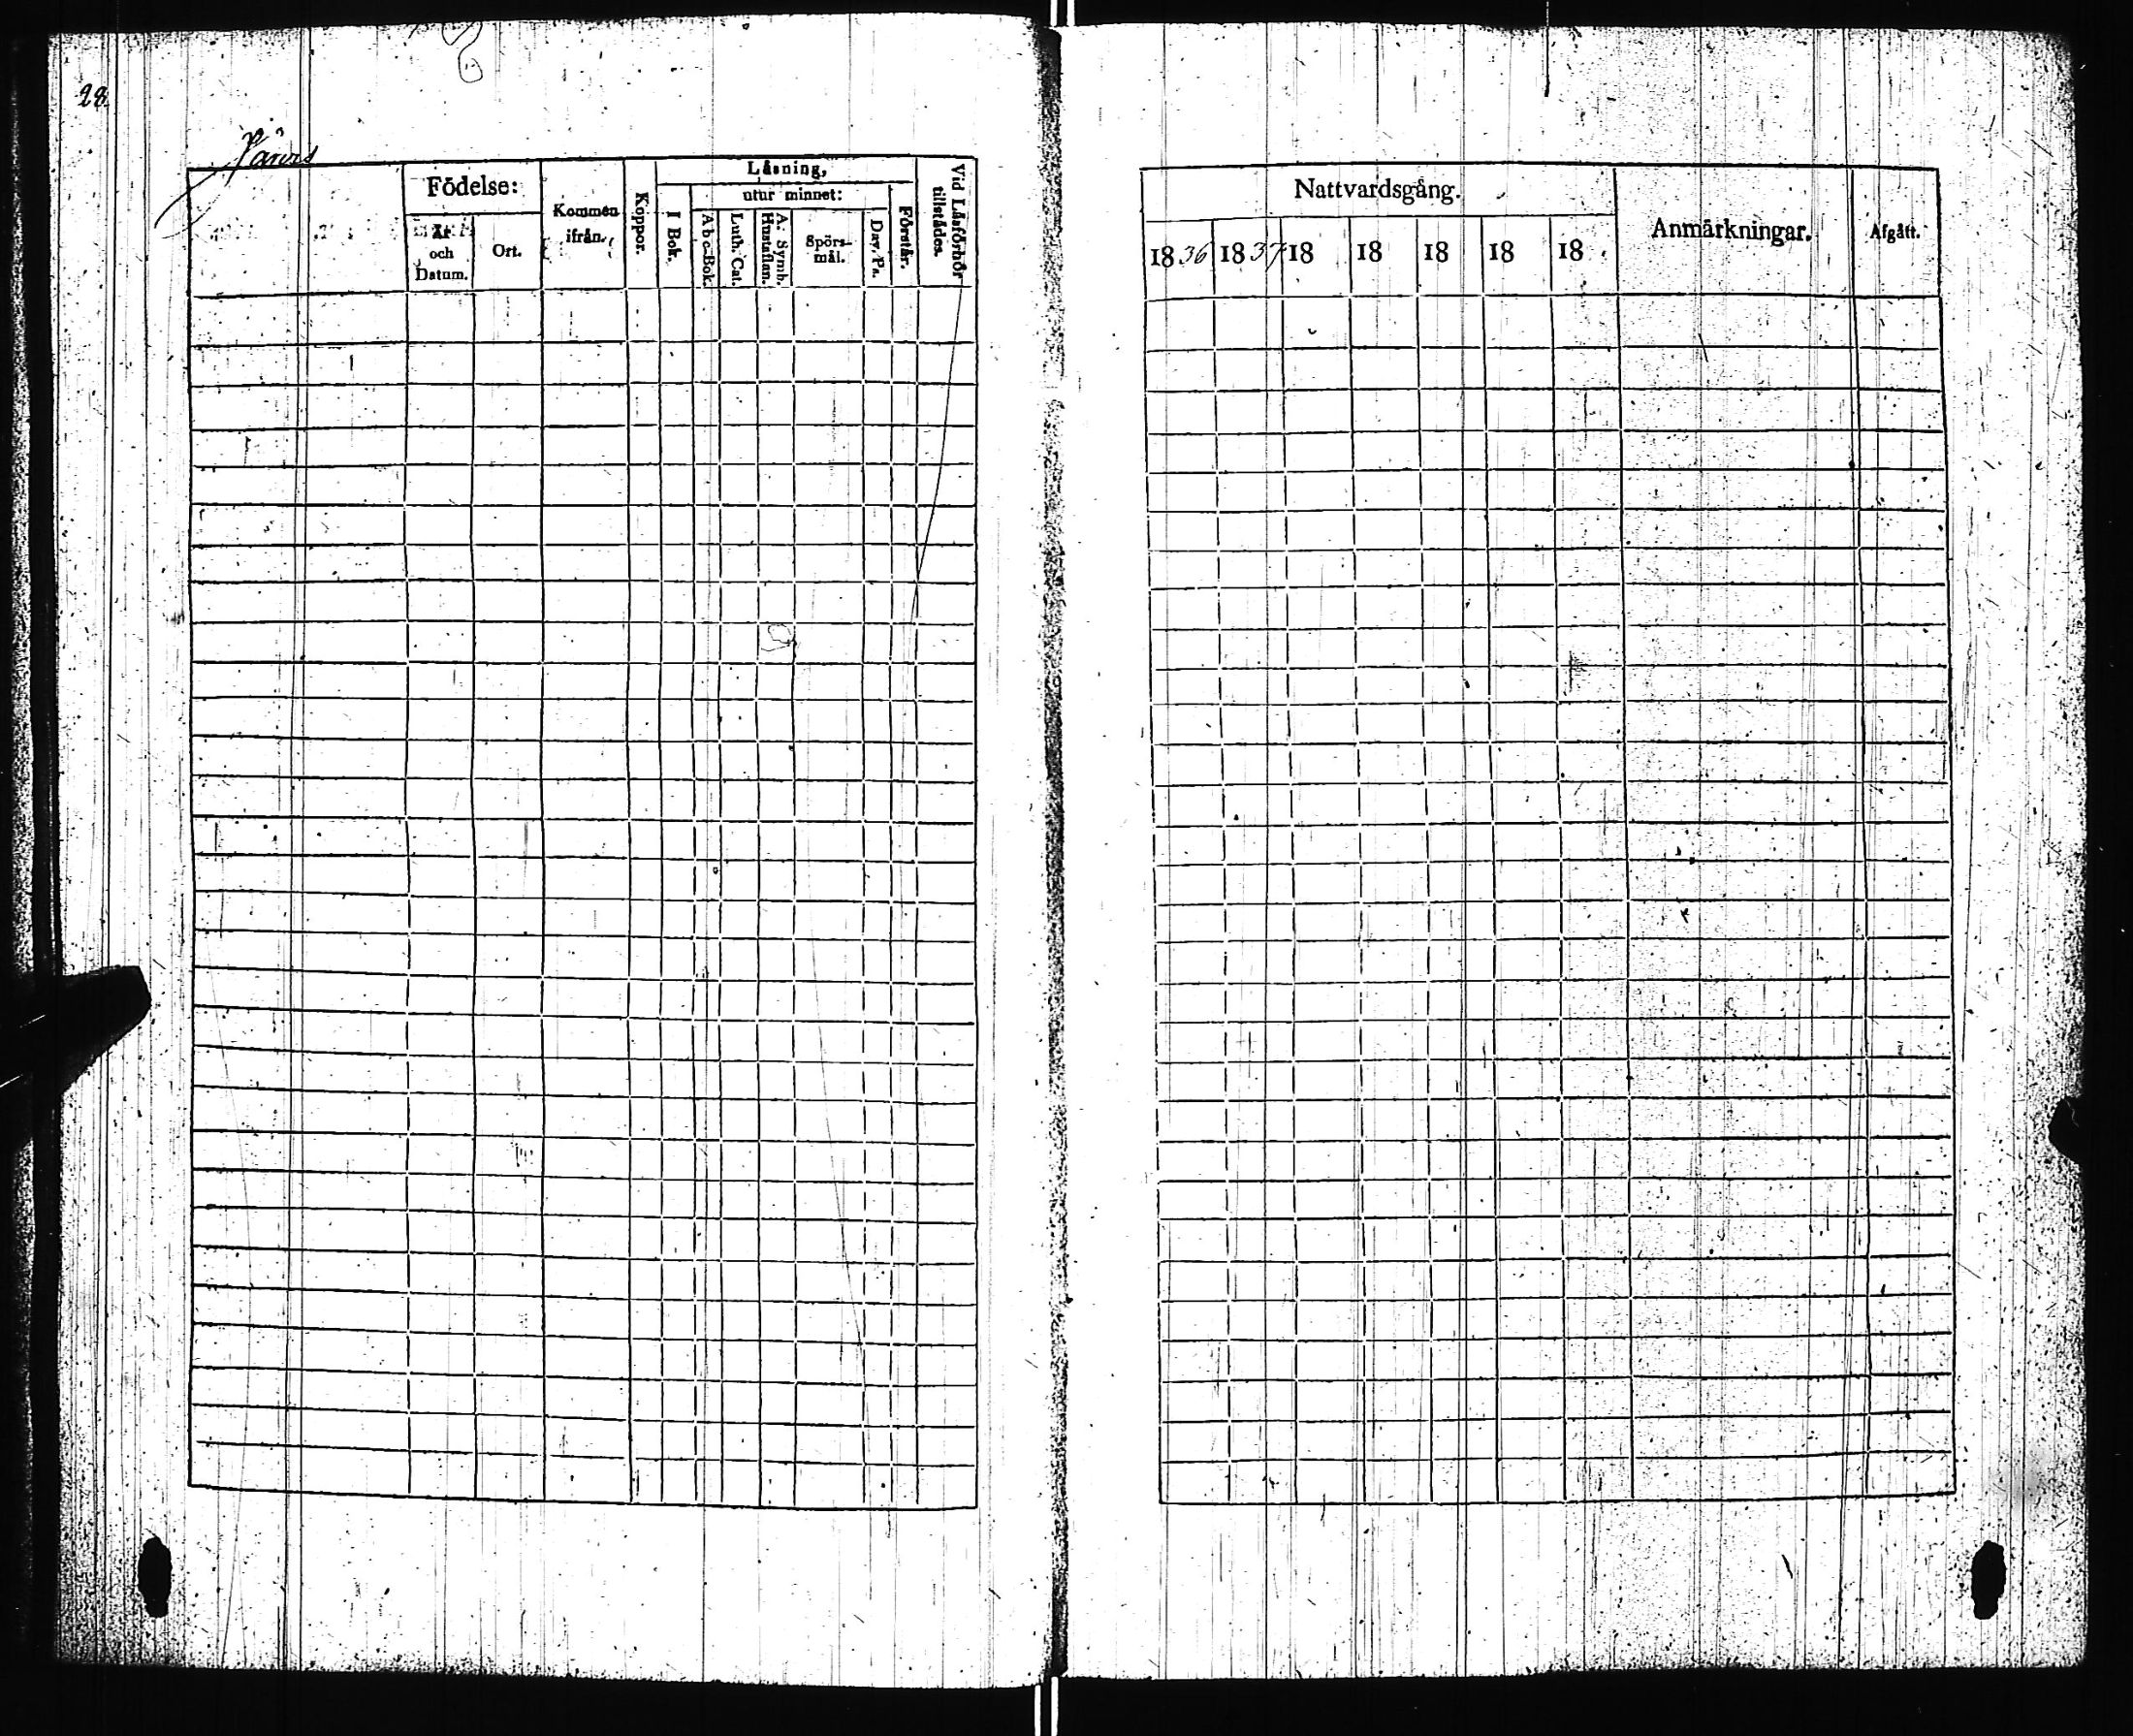 28.
Födelse:
År och Datum.
Ort.
Kommen ifrån.
Koppor.
Läsning,
I Bok.
utur minnet:
A b c-Bok.
Luth. Cat.
A. Symb. Hustaflan.
Spörs-mål.
Dav. Ps.
Förstår.
Vid Läsförhör tillstädes.
Nattvardsgång.
1836 1837 18 18 18 18 18
Anmärkningar.
Afgått.